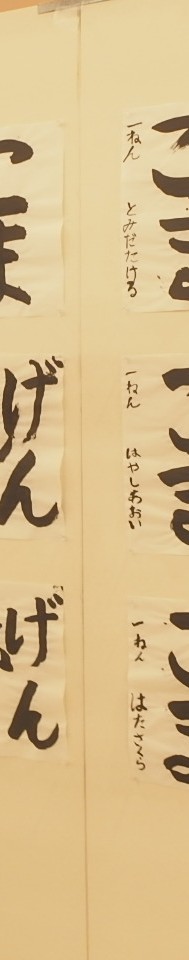 こま
一ねん とみだたける
こま
一ねん はやしあおい
こま
一ねん はたさくら
げん
げん